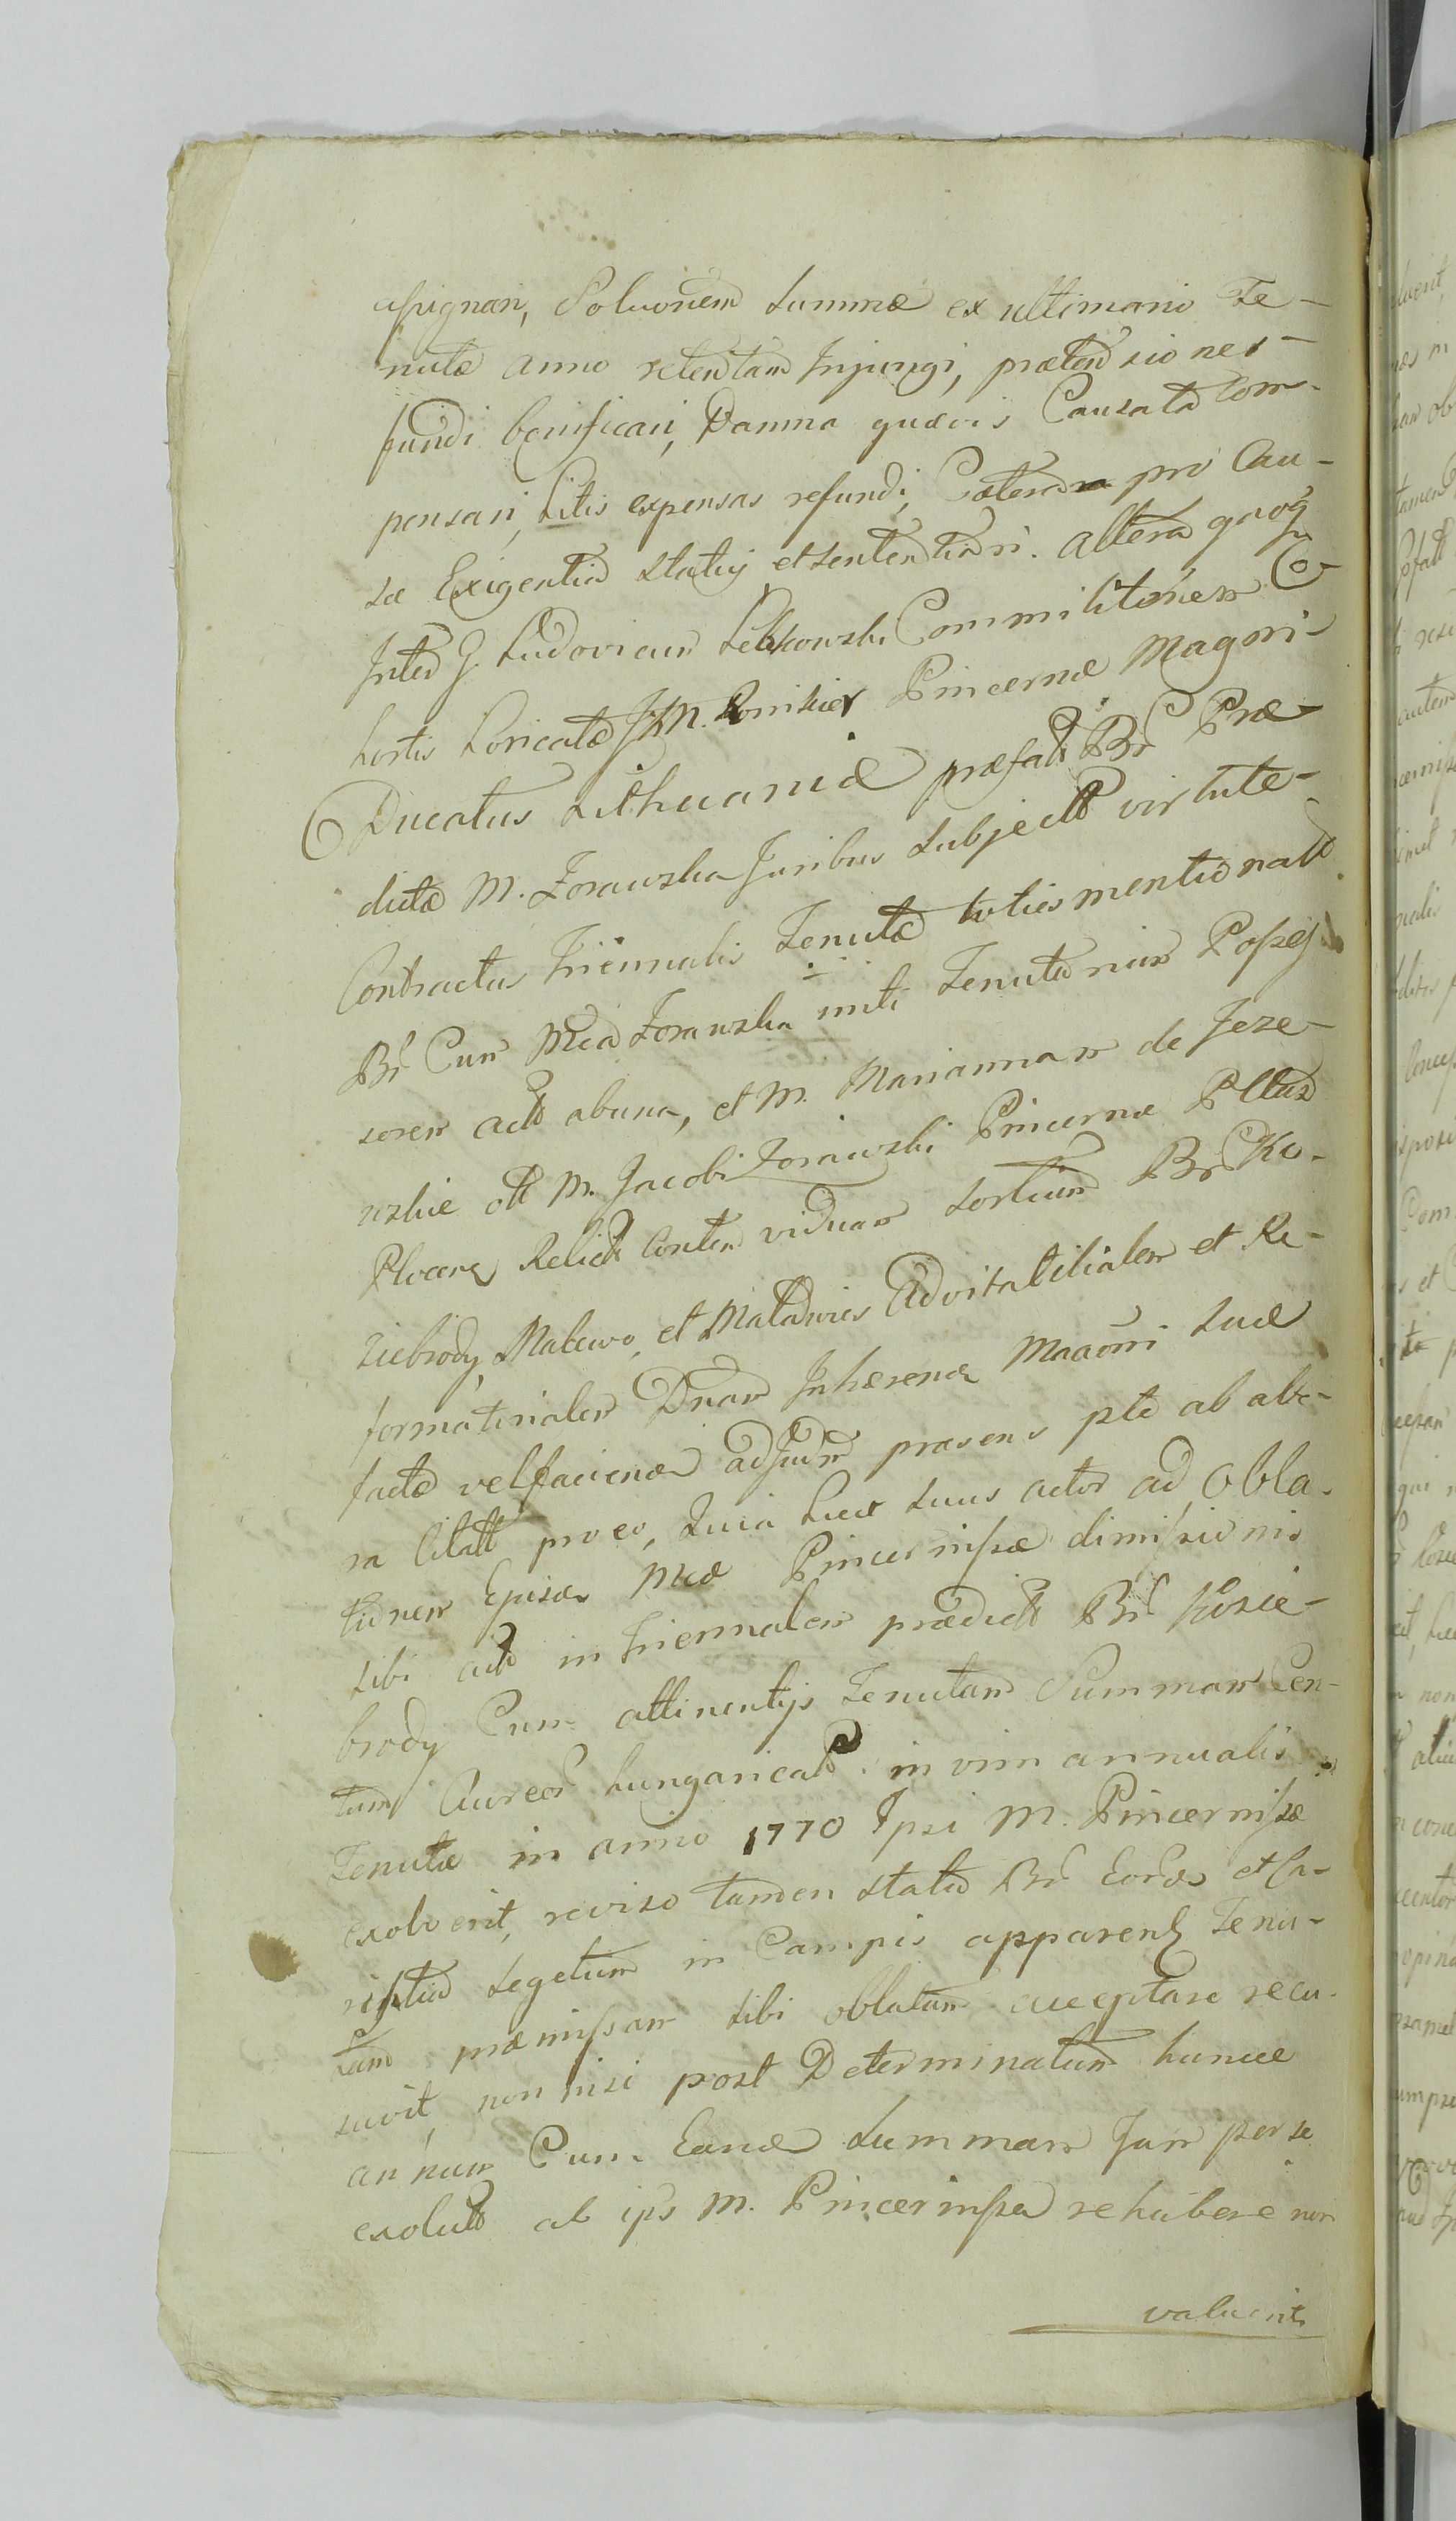 assignari, Soluonem Summæ ex ultimario Te-
nutæ anno retentam Injungi, prætensiones
fundi bonificari, Damna quævis Causata Com-
pensari, Litis expensas refundi, Cætera pro Cau-
sæ Exigentia statuj et sententiari. Altera quoq
Inter G. Ludovicum Lelkowski Commilitonem Co-
hortis Loricatæ M. Pincernæ Magni
Ducatus Lithuaniæ præfat Br Præ-
dictæ M. Zorawska Juribus Subject virtute
Contractus Triennalis Tenutæ toties mentionat
Br Cum Mca Zorawska initi Tenutarium Posses
sorem act abuna, et M. Mariannam de Jeze-
wskie olt M. Jacobi Zorawski Pincernæ Plltus
Plocen Relict Conten viduam sortium Br Ko-
ziebrody, Malewo, et Advitalitialem et Re-
formaterialem Dnam Inhæren Maaoni Suæ
factæ vel faciendæ præsens pte ab abc-
ra Citatt pro eo, Quia Licet Suus actor ad obla-
tionem Episæ Mcæ Pincernissæ dimissionis
sibi act in triennalem prædict Br Kozie-
brody Cum attinentijs Tenutam Summam Cen-
tum Aureor hungarical in vim annualis
Tenutæ in anno 1770 Ipsi M. Pincernissæ
exolverit, reviso tamen statu Br Eorde et Ca-
ristia segetum in Campis apparen Tenu-
tam præmissam sibi oblatam acceptare recu-
savit, non nisi post Determinatum huncce
annum Cum Eand Summam Jam per se
exolut ab ips M. Pincernissa rehabere non
valuerit